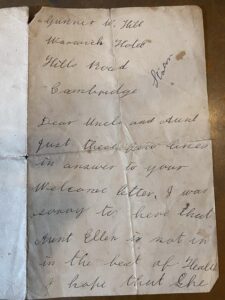 Gunner W. Hill
Warwick Hotel
Hills Road
Cambridge
Dear Uncle and Aunt
Just these few lines
in answer to your
Welcome letter, I was
sorry to here that
Aunt Ellen is not in
in the best of Health
I hope that She